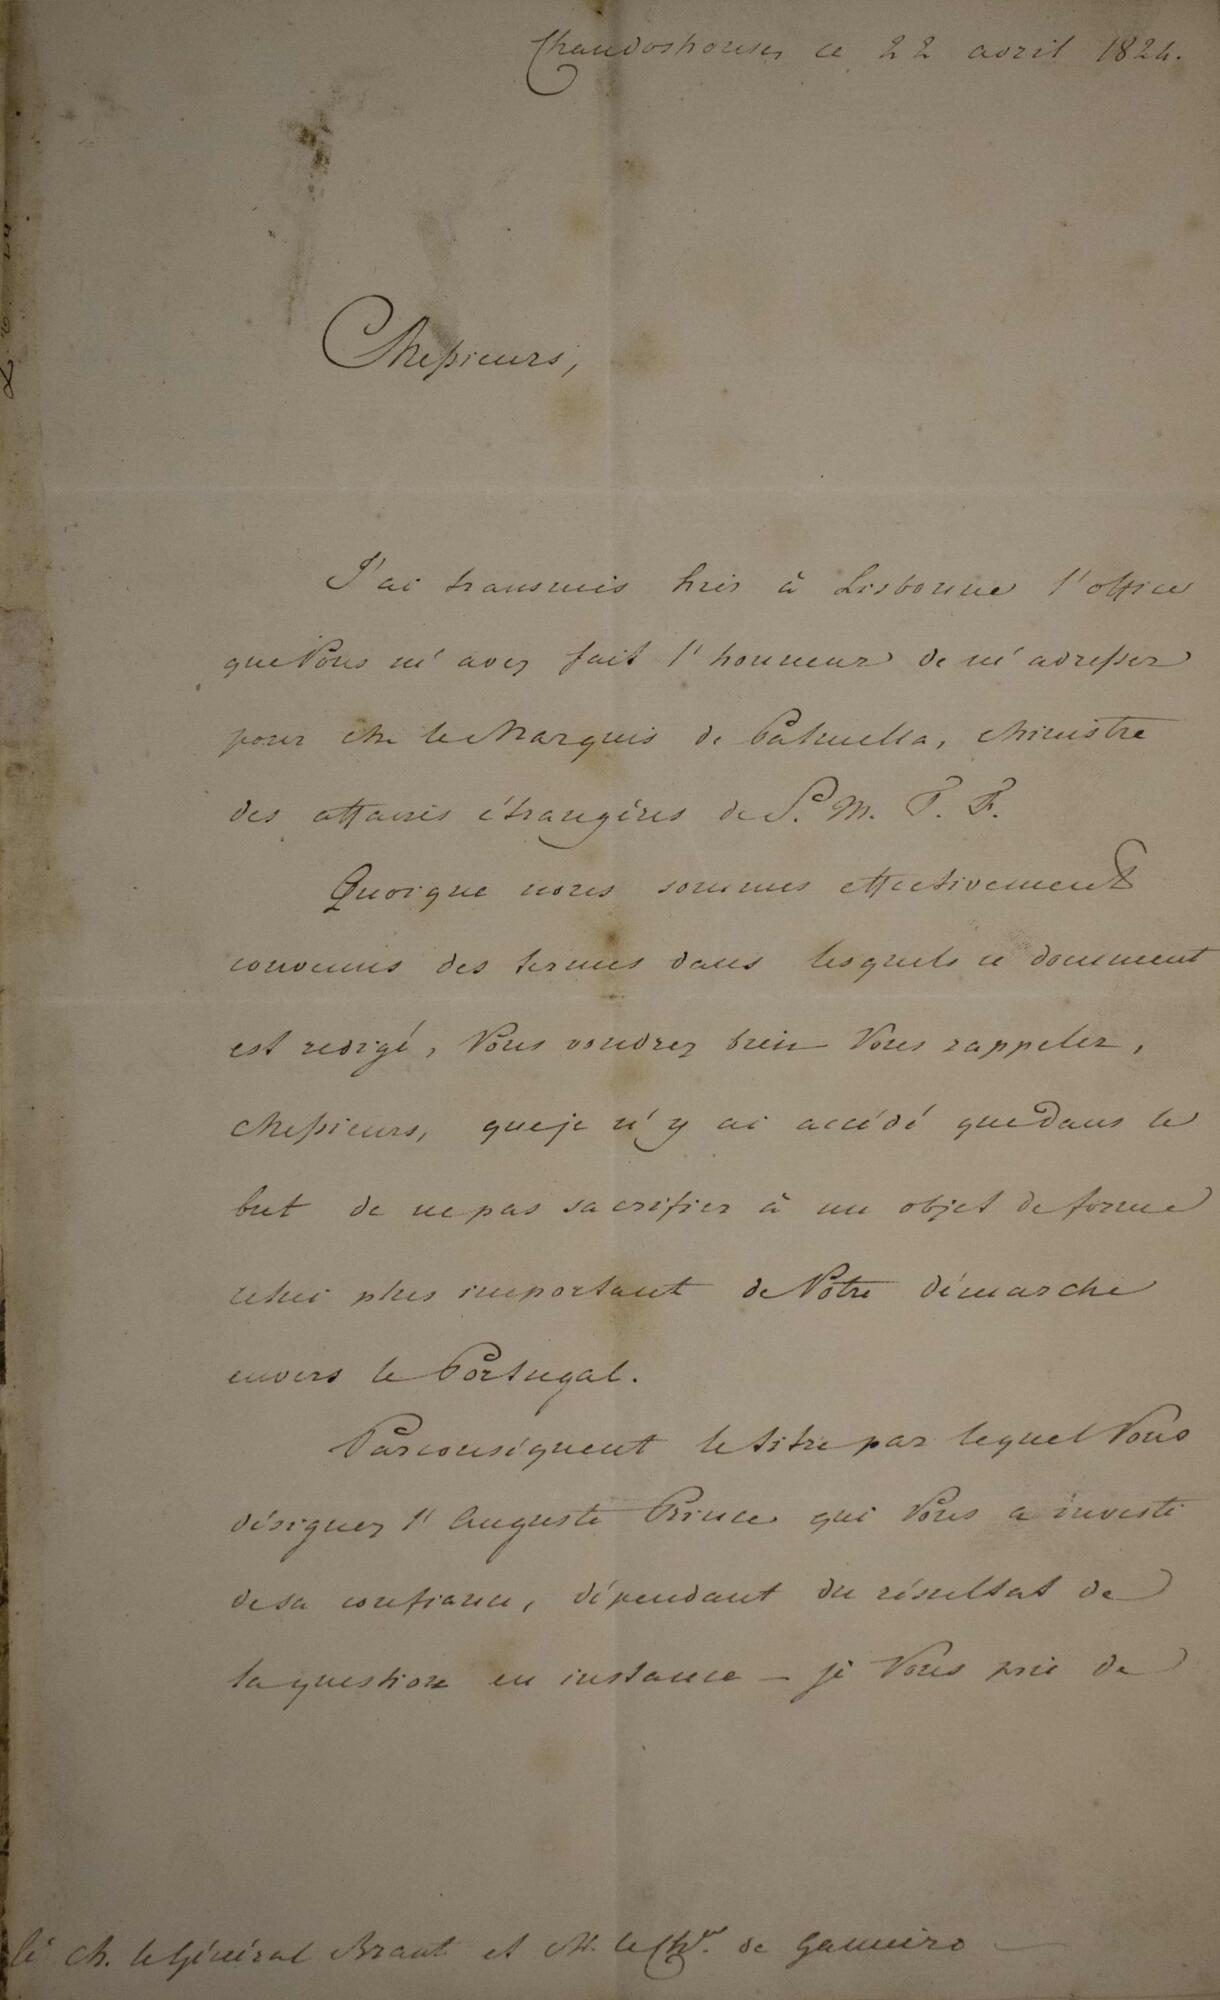 Chandoshouse, ce 22 avril 1824.
Messieurs,
J'ai transmis hier à Lisbonne l'office
que Vous m'avez fait l'honneur de m'adresser
pour M. le Marquis de Palmella, Ministre
des affaires étrangères de S. M. T. F.
Quoique nous sommes effectivement
convenus des termes dans lesquels ce document
est redigé, Vous voudrez bien Vous rappeler,
Messieurs, que je n'y ai accédé que dans le
but de ne pas sacrifier à un objet de forme
celui plus important de Votre démarche
envers le Portugal.
Parconséquent le titre par lequel Vous
désignez l'Auguste Prince qui Vous a investi
de sa confiance, dépendant du résultat de
la question en instance – je Vous prie de
M. le Général Brant et M. le Chr. de Gameiro